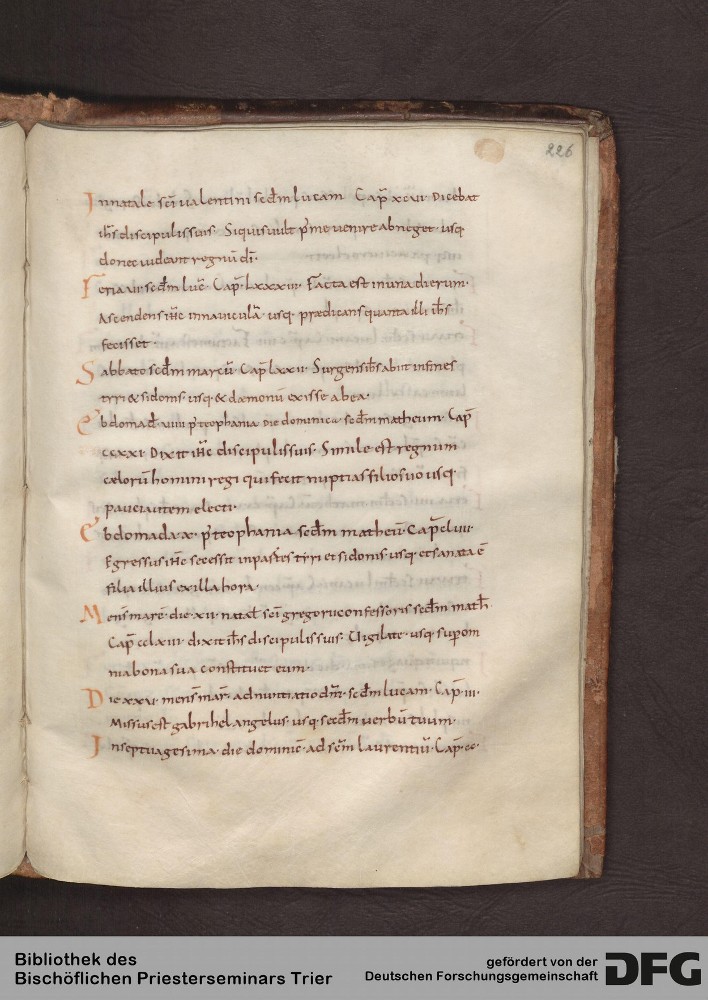 226
Innatale sc̄i ualentini secd̄m lucam Cap̄ xcvi Dicebat
ih̄s discipulis suis Siquis uult p̄ me uenire abneget usq
donec uideat regnū dī·
Feria vii· secd̄m luc̄· Cap̄· Lxxxiii· Facta est inuna dierum·
Ascendens ih̄c innauiculā usq· praedicans quanta illi ih̄s
fecisset·
Sabbato secd̄m marcū· Cap̄ Lxxii· Surgens ih̄s abiit infines
tyri & sidonis usq· & daemoniū exisse abea·
Ebdomad̄ viiii p̄ teophania die dominica secd̄m matheum· Cap̄
ccxxi· Dixit ih̄c discipulis suis· Simile est regnum
caelorū homini regi qui fecit nuptias filio suo usq·
pauci autem electi·
Ebdomada·x· p̄ teophania secd̄m matheū· Cap̄ clvii·
Egressus ih̄c secessit inpartes tyri et sidonis· usq· et sanata ē
filia illius exilla hora·
Mens̄ marc̄· die·xii· natal̄ sc̄i gregorii confessoris secd̄m math̄
Cap̄ cclxiii· dixit ih̄s discipulis suis· Uigilate· usq· sup̄ om
nia bona sua constituet eum·
Die xxv· mens̄ mar̄· adnuntiatio dn̄i· secd̄m lucam· Cap̄· iii·
Missus est gabrihel angelus· usq· secd̄m uerbū tuum·
Inseptuagesima· die dominic̄· ad sc̄m laurentiū· Cap̄· cc·
Bibliothek des
Bischöflichen Priesterseminars Trier
gefördert von der
Deutschen Forschungsgemeinschaft
DFG